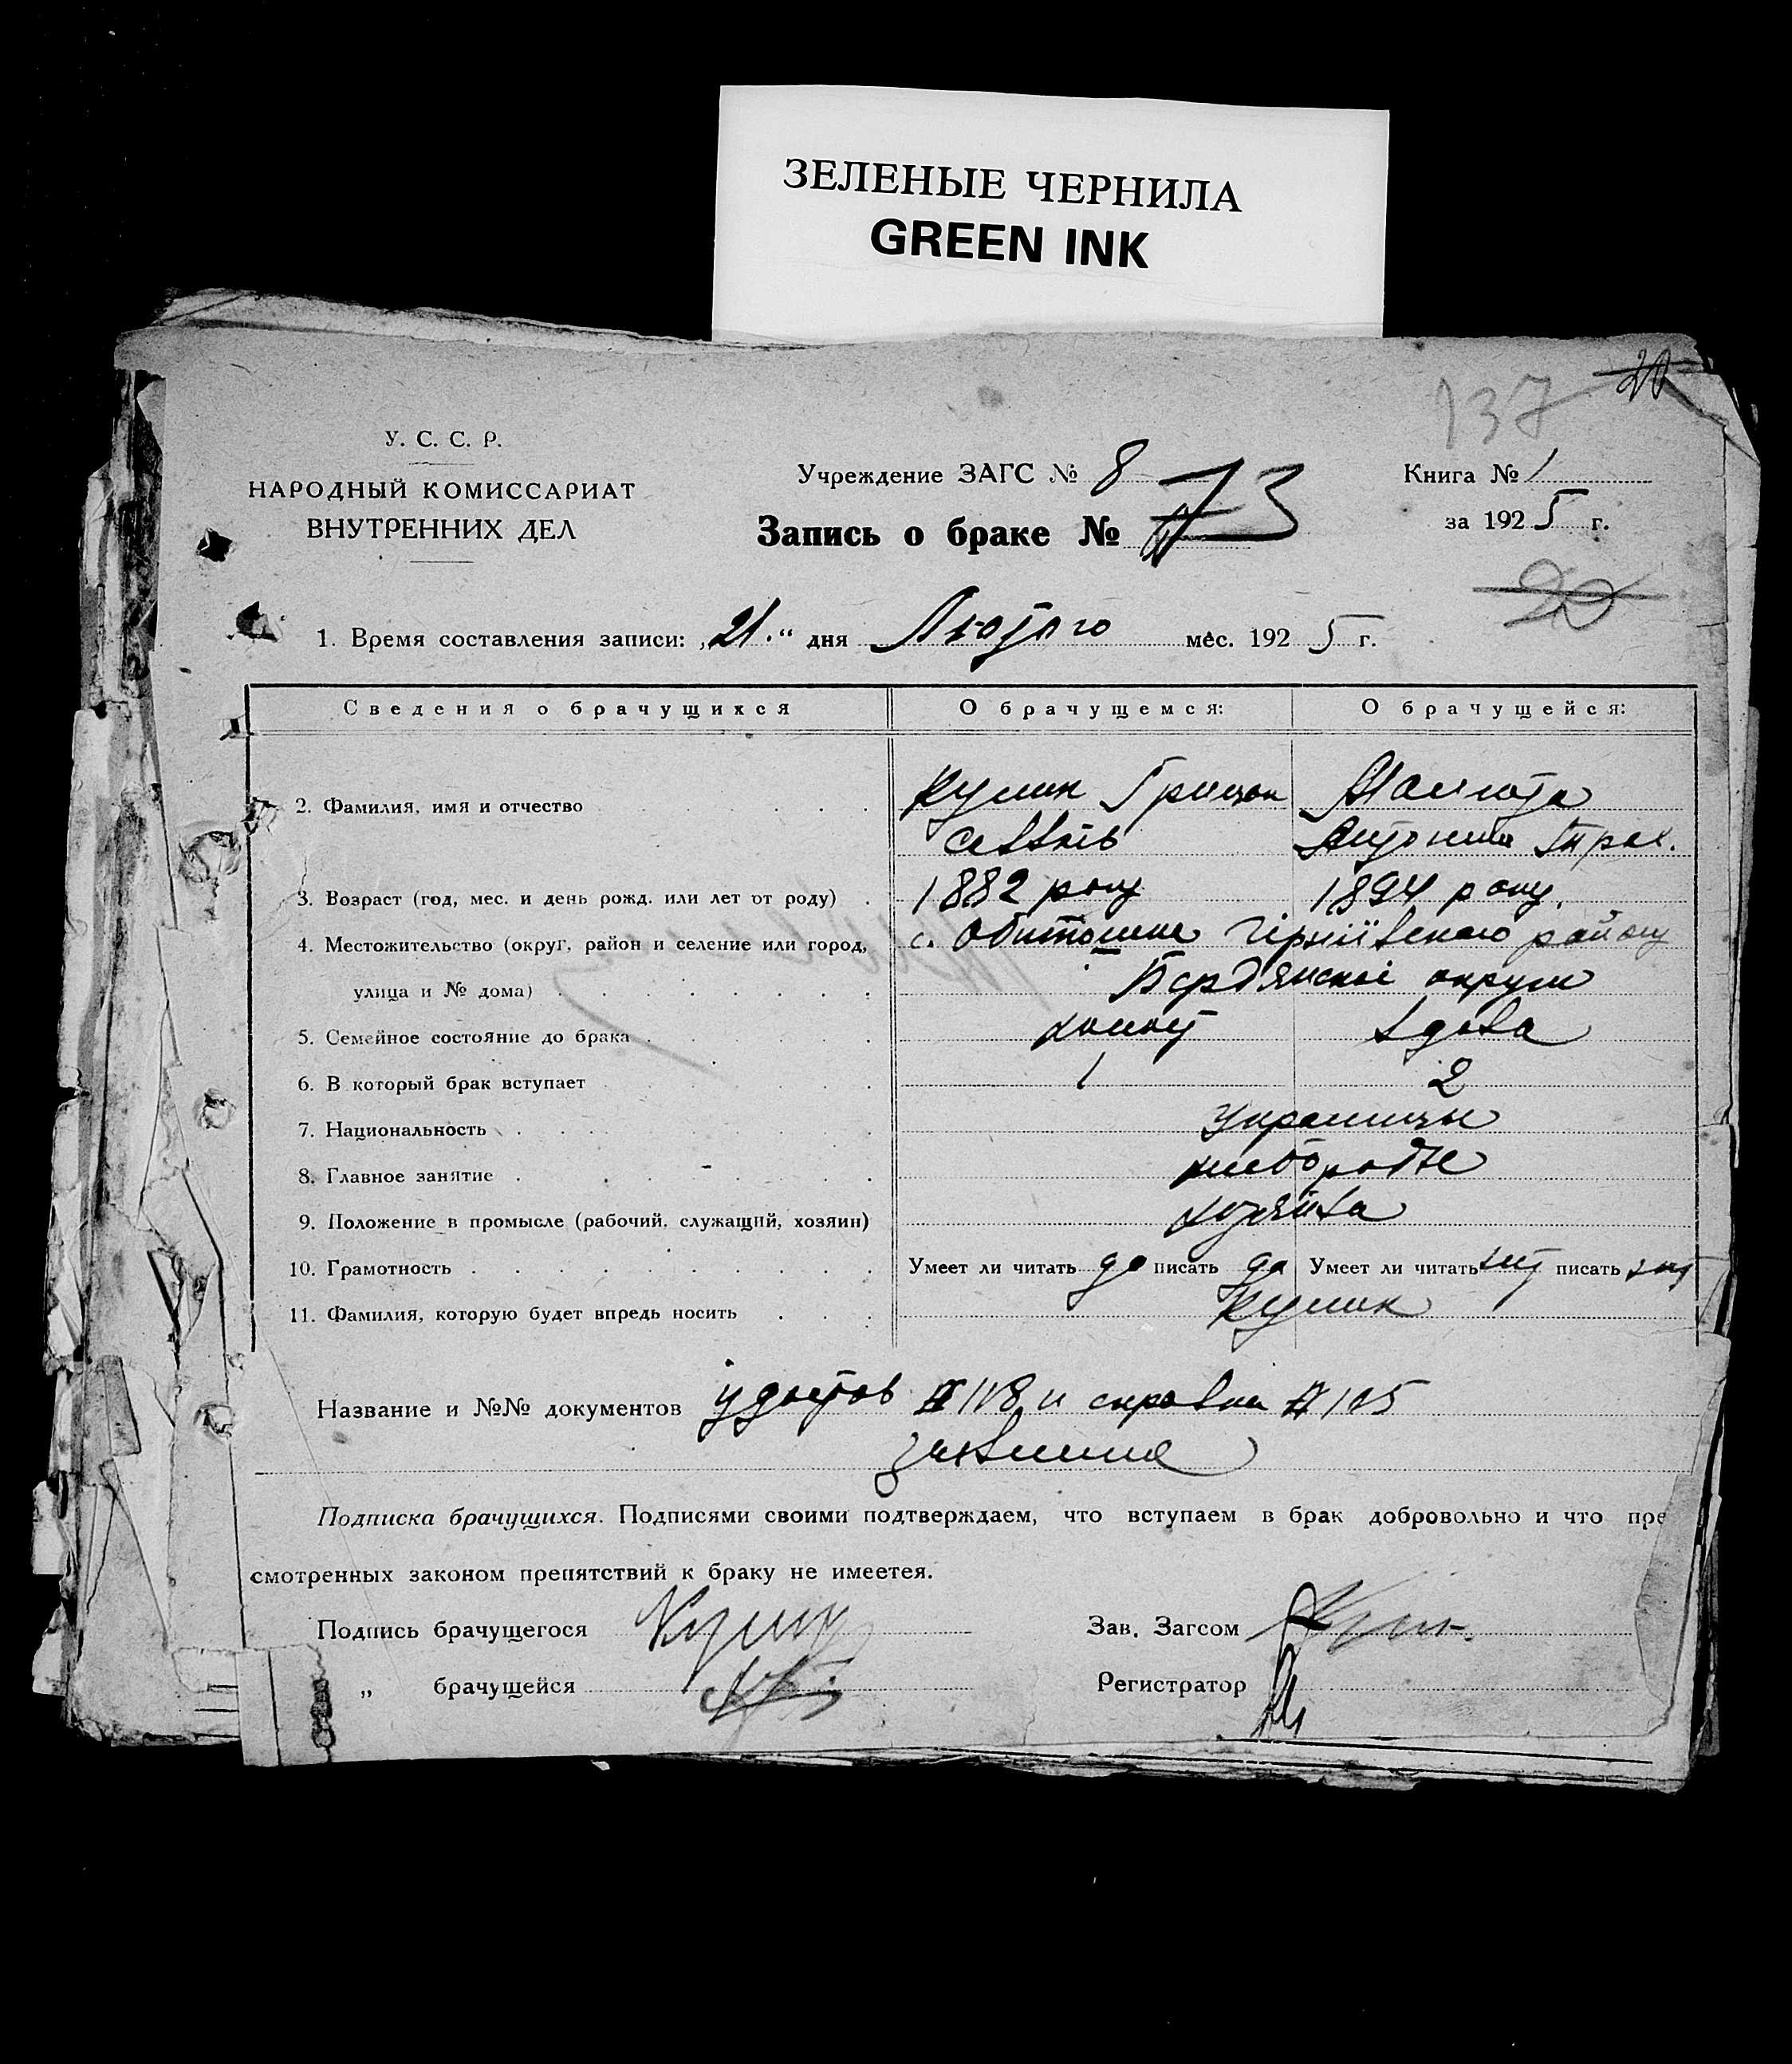 ЗЕЛЕНЫЕ ЧЕРНИЛА
GREEN INK
137 20
У. С. С. Р.
НАРОДНЫЙ КОМИССАРИАТ
ВНУТРЕННИХ ДЕЛ
Учреждение ЗАГС № 8
Запись о браке № 73
Книга № 1
за 1925 г.
20
1. Время составления записи: „21.“ дня Лютого мес. 1925 г.
Сведения о брачущихся О брачущемся: О брачущейся:
2. Фамилия, имя и отчество Кулик Грицон
Антонина
3. Возраст (год, мес. и день рожд. или лет от роду) 1882 року 1894 року.
4. Местожительство (округ, район и селение или город, с. району
улица и № дома) Бердянскоі округи
5. Семейное состояние до брака вдова
6. В который брак вступает 1 2
7. Национальность українцы
8. Главное занятие
9. Положение в промысле (рабочий, служащий, хозяин)
10. Грамотность Умеет ли читать да писать да Умеет ли читать писать
11. Фамилия, которую будет впредь носить Кулик
Название и №№ документов удостов № 118 и справка № 105
Подписка брачущихся. Подписями своими подтверждаем, что вступаем в брак добровольно и что пре
смотренных законом препятствий к браку не имеетея.
Подпись брачущегося Кулик Зав. Загсом
„ брачущейся Регистратор